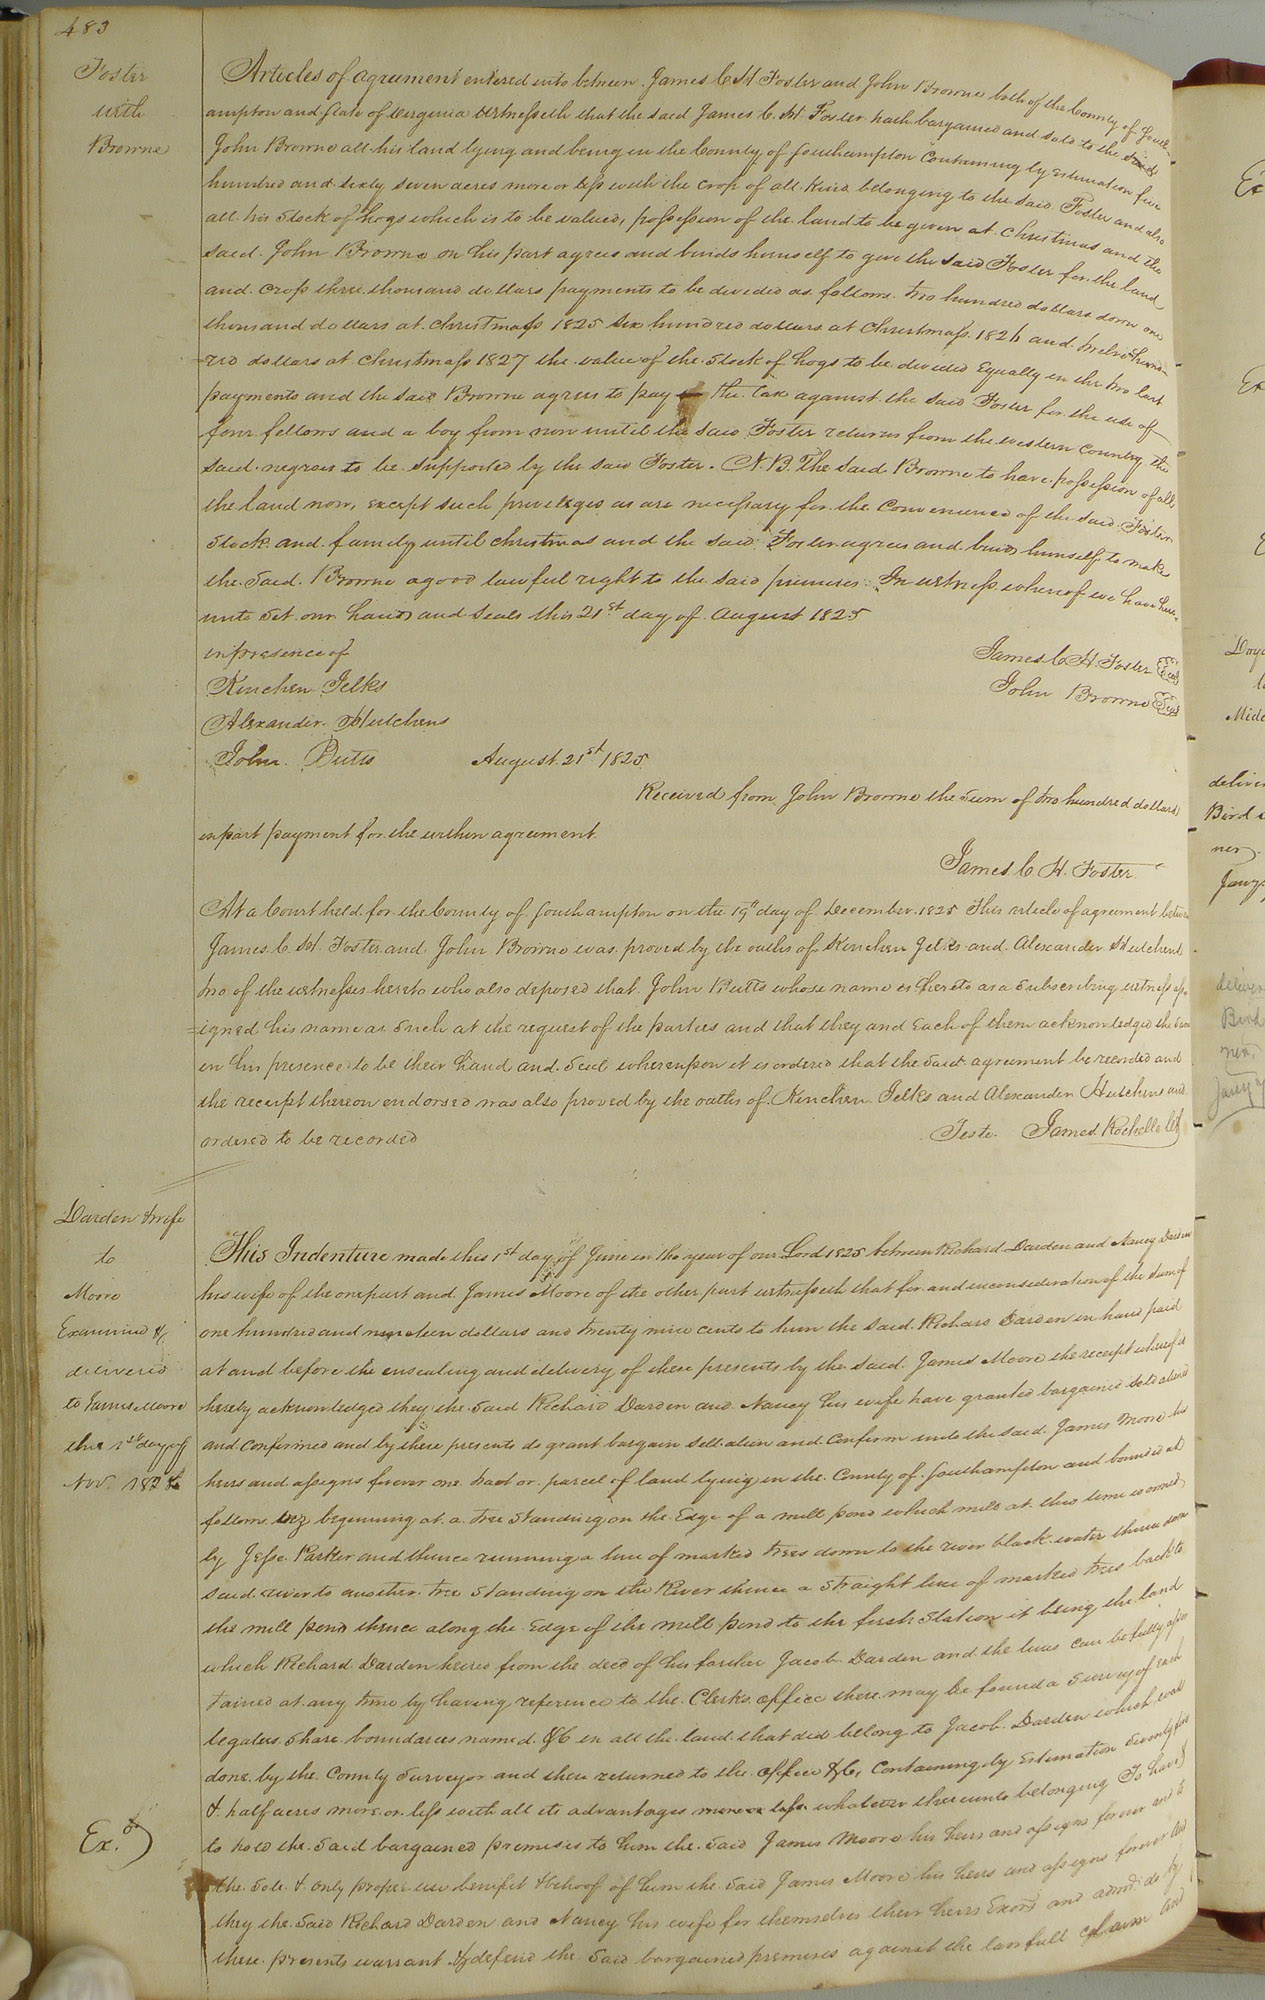 483
Foster
with
Browne
Articles of agreement entered into between James C. H. Foster and John Browne both of the County of South-
ampton and State of Virginia Witnesseth that the said James C. H. Foster hath bargained and sold to the said
John Browne all his land lying and being in the County of Southampton Containing by estimation five
hundred and sixty seven acres more or less with the crop of all kind belonging to the said Foster and also
all his stock of hogs which is to be valued, possession of the land to be given at Christmas and the
said John Browne on his part agrees and binds himself to give the said Foster for the land
and crop three thousand dollars payments to be divided as follows two hundred dollars down one
thousand dollars at Christmass 1825 six hundred dollars at Christmass 1826 and twelve hund-
red dollars at Christmass 1827 the value of the stock of hogs to be divided Equally in the two last
payments and the said Browne agrees to pay the tax against the said Foster for the use of
four fellows and a boy from now until the said Foster returns from the western country the
said negroes to be supported by the said Foster. N.B. The said Browne to have possession of all
the land now, except such privileges as are necessary for the Convenience of the said Foster
Stock and family until christmas and the said Foster agrees and binds himself to make
the said Browne a good lawful right to the said premises. In witness whereof we have here-
unto set our hands and seals this 21st day of August 1825
in presence of
James C. H. Foster Seal
Kinchen Jelks
John Browne Seal
Alexander Hutchens
John Butts
August 21st 1825
Received from John Browne the sum of two hundred dollars
in part payment for the within agreement.
James C. H. Foster
At a Court held for the County of Southampton on the 19th day of December 1825 This article of agreement between
James C. H. Foster and John Browne was proved by the oaths of Kinchen Jelks and Alexander Hutchens
two of the witnesses hereto who also deposed that John Butts whose name is hereto as a subscribing witness ass-
igned his name as such at the request of the parties and that they and Each of them acknowledged the same
in his presence to be their hand and seal whereupon it is ordered that the said agreement be recorded and
the receipt thereon endorsed was also proved by the oaths of Kinchen Jelks and Alexander Hutchens and
ordered to be recorded
Teste James Rochelle Clk
Darden & wife
to
Moore
Examined &
delivered
to James Moore
the 1st day of
Nov. 1828
This Indenture made this 1st day of June in the year of our Lord 1825 between Richard Darden and Nancy Darden
his wife of the one part and James Moore of the other part witnesseth that for and in consideration of the sum of
one hundred and nineteen dollars and twenty nine cents to him the said Richard Darden in hand paid
at and before the ensealing and delivery of these presents by the said James Moore the receipt whereof is
hereby acknowledged they the said Richard Darden and Nancy his wife have granted bargained sold aliened
and confirmed and by these presents do grant bargain sell alien and confirm unto the said James Moore his
heirs and assigns forever one tract or parcel of land lying in the County of Southampton and bounded as
follows viz beginning at a tree standing on the Edge of a mill pond which mill at this time is owned
by Jesse Parker and thence running a line of marked trees down to the river black water thence down
said river to another tree standing on the River thence a straight line of marked trees back to
the mill pond thence along the Edge of the mill pond to the first station it being the land
which Richard Darden heired from the deed of his farther Jacob Darden and the lines can be fully asser
tained at any time by having reference to the Clerks office there may be found a survey of each
legatees share boundaries named &C in all the land that did belong to Jacob Darden which was
done by the County surveyor and there returned to the office &C, Containing by Estimation
& half acres more or less with all its advantages more or less whatever thereunto belonging To have &
to hold the said bargained premises to him the said James Moore his heirs and assigns forever and to
the sole & only proper use benefit & behoof of him the said James Moore his heirs and assigns forever and
they the said Richard Darden and Nancy his wife for themselves their heirs Exors and admrs do by
these presents warrant & defend the said bargained premises against the lawfull claim and
Ex.d
Midd
deliver
Bird
ner